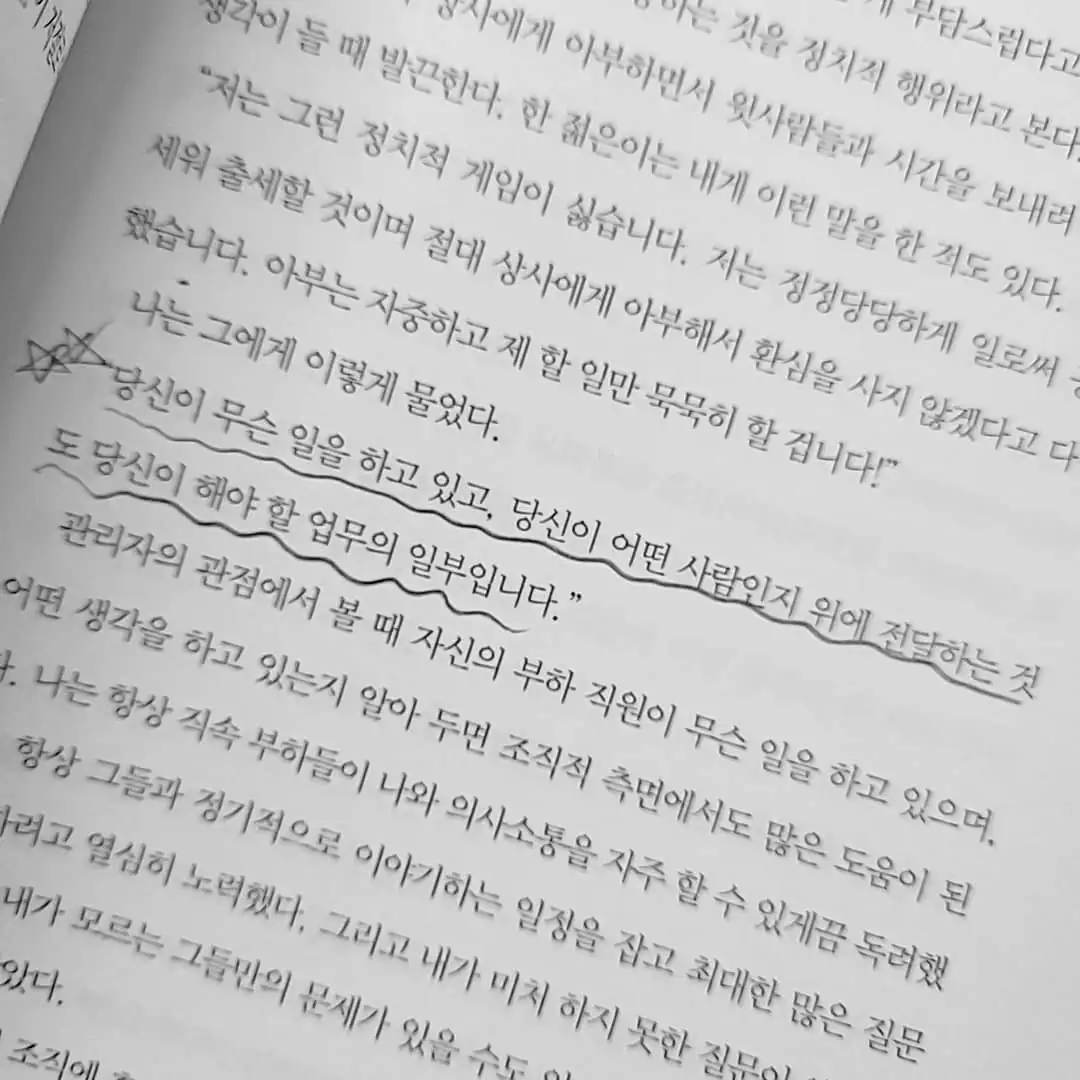 게 부담스럽다고
하는 것을 정치적 행위라고 본다.
상사에게 아부하면서 윗사람들과 시간을 보내려
생각이 들 때 발끈한다. 한 젊은이는 내게 이런 말을 한 적도 있다.
“저는 그런 정치적 게임이 싫습니다. 저는 정정당당하게 일로써
세워 출세할 것이며 절대 상사에게 아부해서 환심을 사지 않겠다고 다
했습니다. 아부는 자중하고 제 할 일만 묵묵히 할 겁니다!”
나는 그에게 이렇게 물었다.
당신이 무슨 일을 하고 있고, 당신이 어떤 사람인지 위에 전달하는 것
도 당신이 해야 할 업무의 일부입니다.”
관리자의 관점에서 볼 때 자신의 부하 직원이 무슨 일을 하고 있으며,
어떤 생각을 하고 있는지 알아 두면 조직적 측면에서도 많은 도움이 된
다. 나는 항상 직속 부하들이 나와 의사소통을 자주 할 수 있게끔 독려했
항상 그들과 정기적으로 이야기하는 일정을 잡고 최대한 많은 질문
하려고 열심히 노력했다. 그리고 내가 미처 하지 못한 질문이
내가 모르는 그들만의 문제가 있을 수도
있다.
조직에